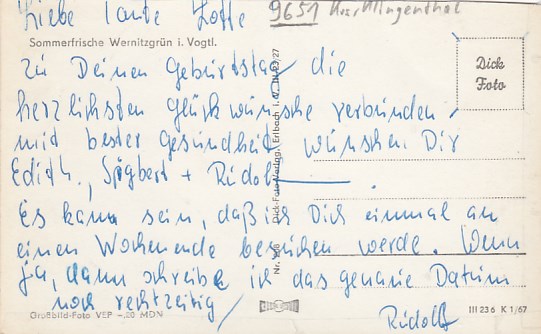 Liebe Tante Lotte
9651 Krs. Klingenthal
Sommerfrische Wernitzgrün i. Vogtl.
Dick
Foto
Zu Deinen Geburtstag die
herzlichsten Glückwünsche verbunden
mit bester Gesundheit wünschen Dir
Edith, Sigbert + Rudolf
Es kann sein, daß ich Dich einmal an
einen Wochenende besuchen werde. Wenn
ja, dann schreibe ich das genaue Datum
noch rechtzeitig
Rudolf
Dick-Foto-Verlag, Erlbach i. V.
Großbild-Foto VEP -,20 MDN
III 23 6 K 1/67